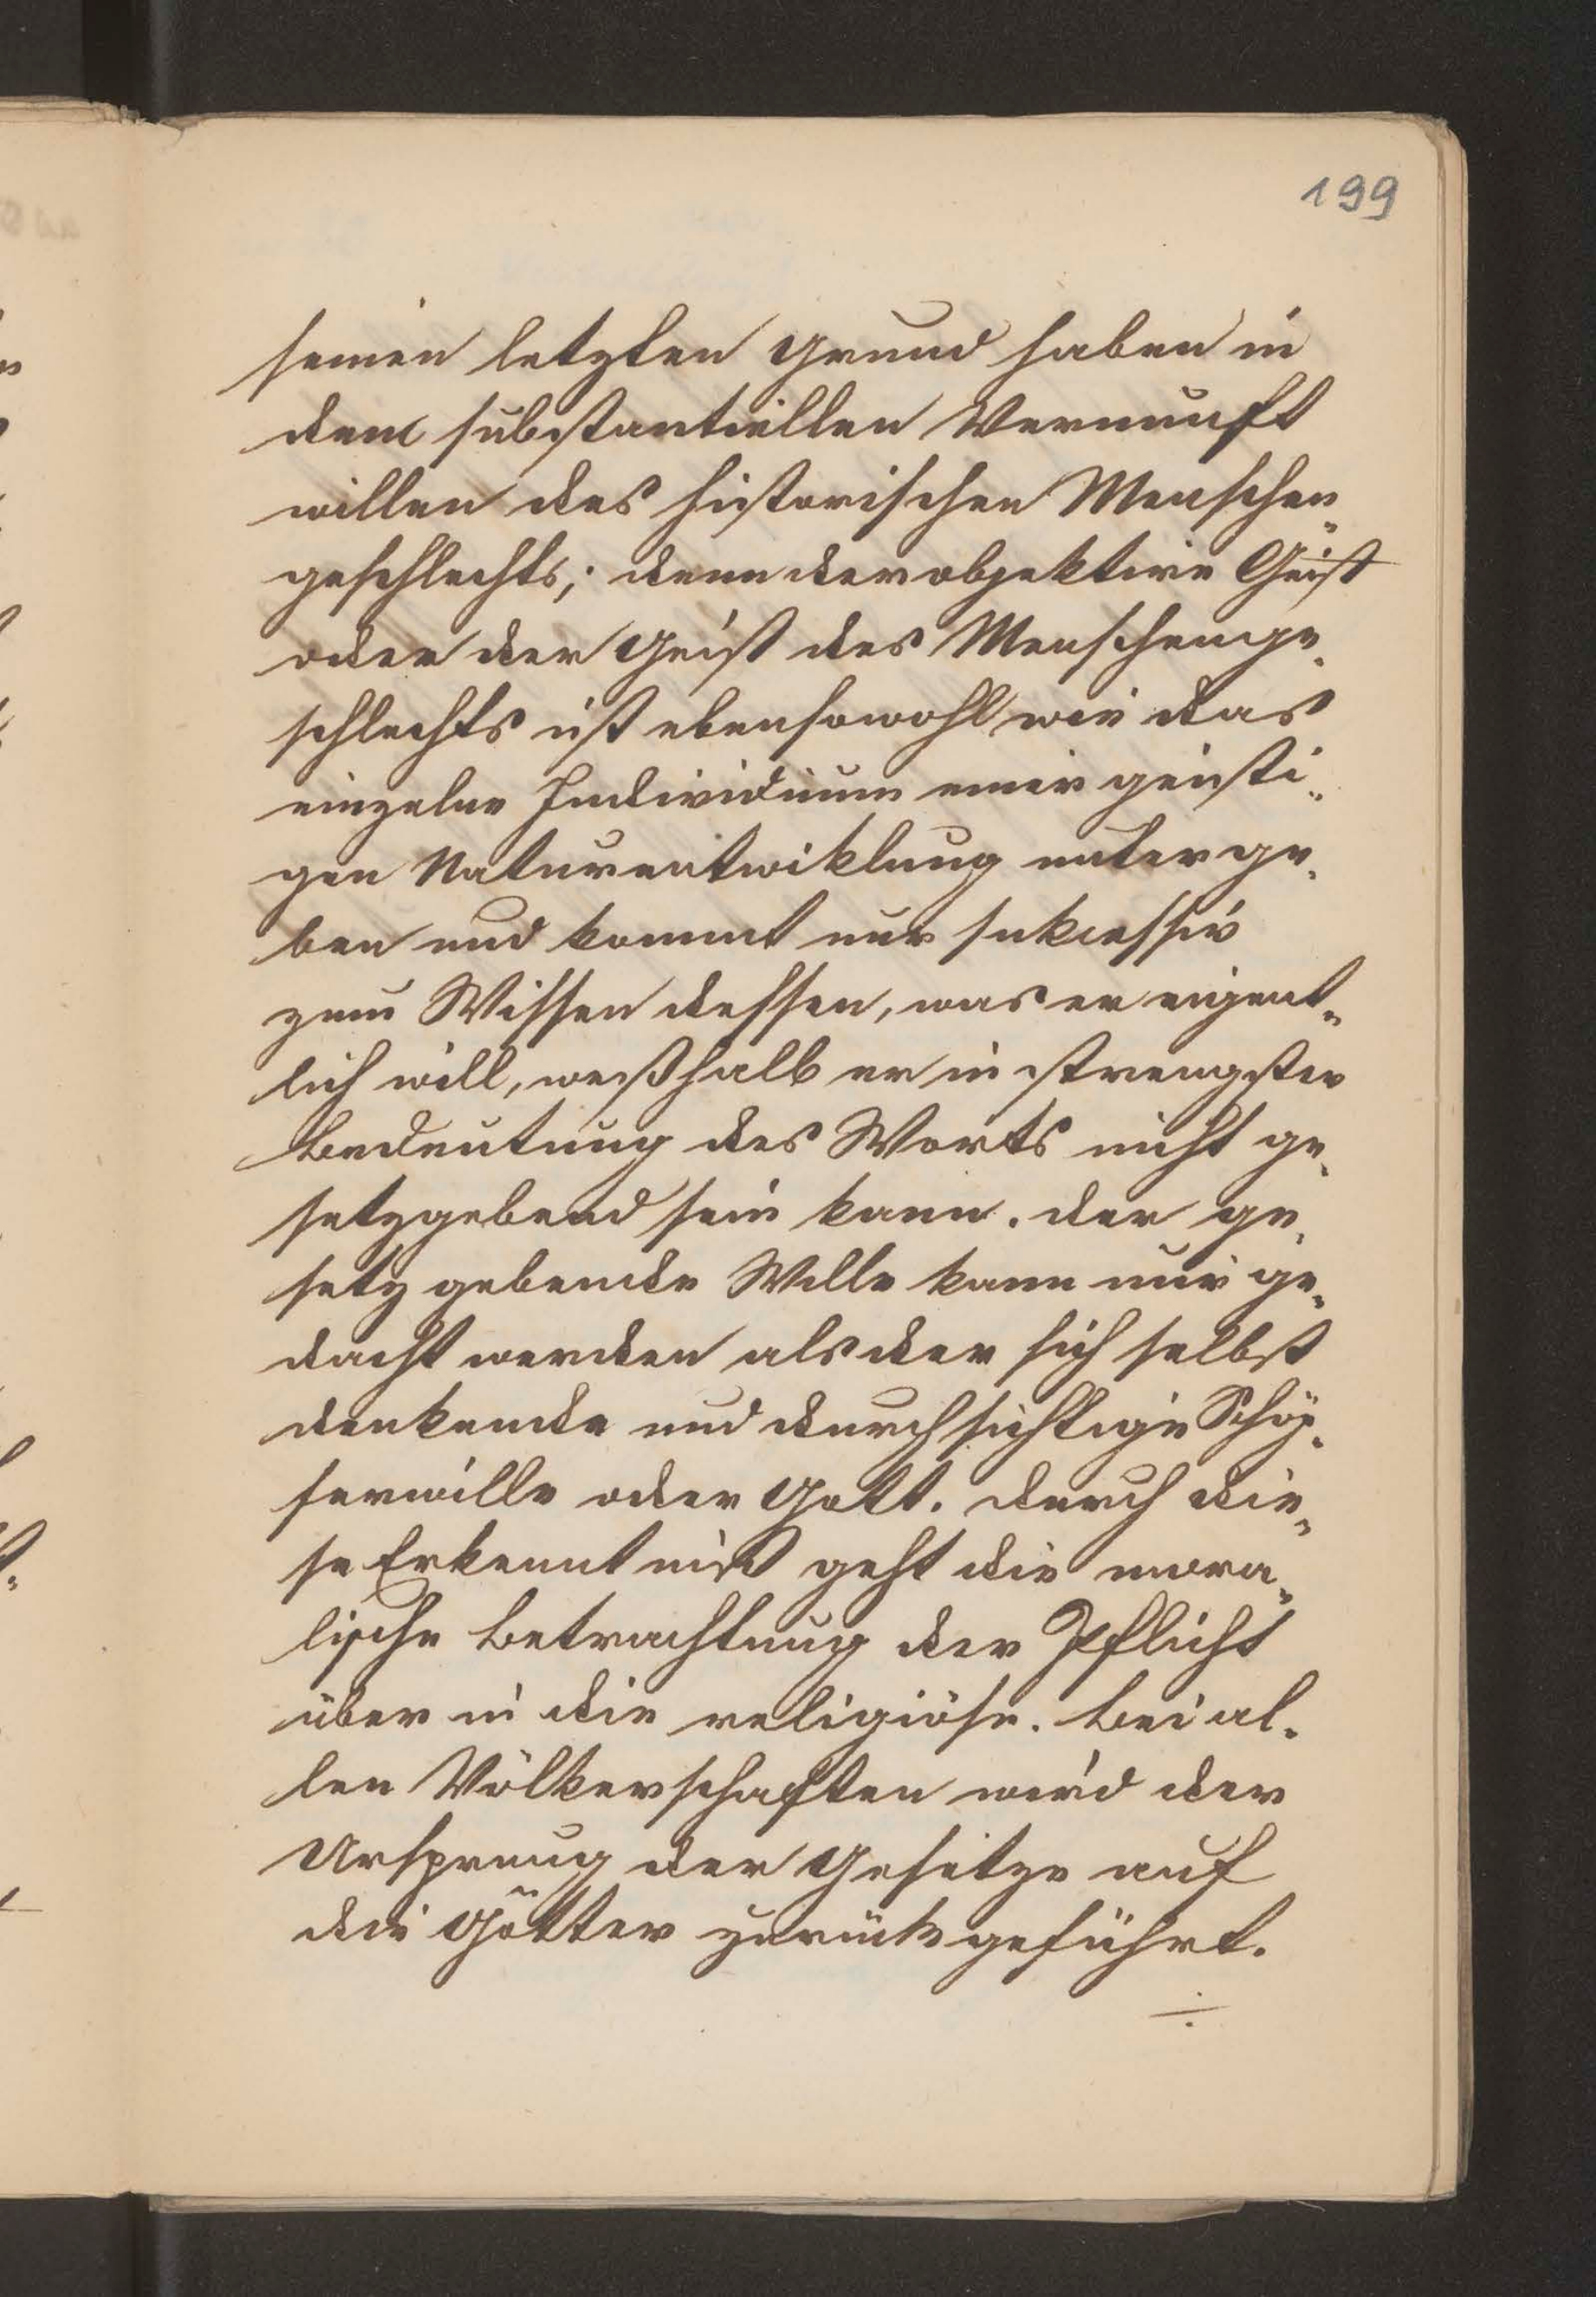 199
seinen letzten Grund haben in
dem substantiellen Vernunft
willen des historischen Menschen„
geschlechts; denn der objektive Geist
oder der Geist des Menschenge„
schlechts ist ebensowohl wie das
einzelne Individuum einer geisti„
gen Naturentwiklung unterge„
ben und kommt nur sukcessiv
zum Wissen dessen, was er eigent„
lich will, weßhalb er in strengster
Bedeutung des Worts nicht ge„
setzgebend sein kann. Der ge„
setzgebende Wille kann nur ge„
dacht werden als der sich selbst
denkende und durchsichtige Schöp„
ferwille oder Gott. Durch die„
se Erkenntniß geht die mora„
lische Betrachtung der Pflicht
über in die religiöse. Bei al„
len Völkerschaften wird der
Ursprung der Gesetze auf
die Götter zurückgeführt.
÷